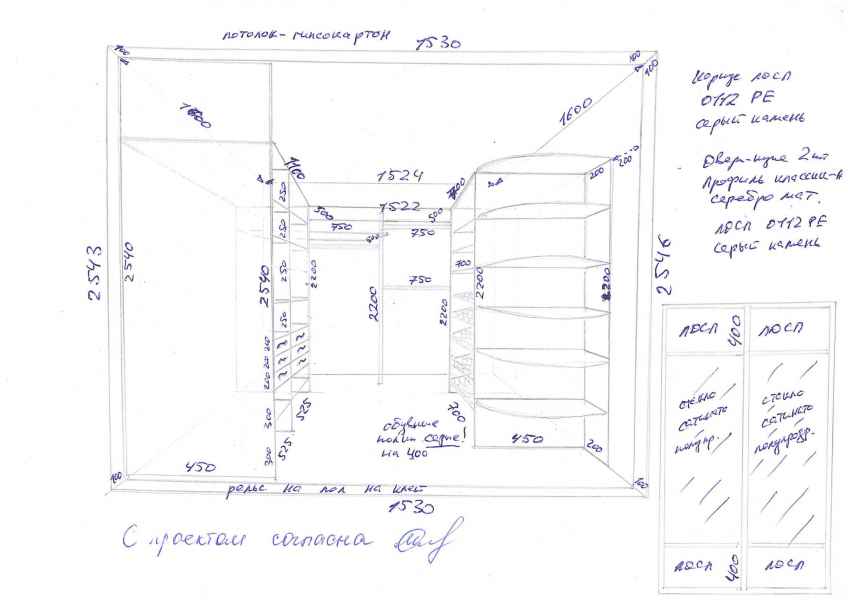 потолок-гипсокартон
1530
100
100
100
1600
1524
1522
1100
500
750
500
750
500
750
250
250
250
250
2543
2540
2540
2200
2200
2200
2200
2200
2546
700
200
200
200
525
525
300
300
700
обувные
полки серые!
на 400
450
450
200
100
рельс на пол на клей
1530
С проектом согласна
Корпус лдсп
0112 PE
серый камень
Двери-купе 2шт
Профиль классик-А
серебро мат.
лдсп 0112 PE
серый камень
лдсп 400 лдсп
стекло
сатинато
стекло
сатинато
полупрозр.
лдсп 400 лдсп